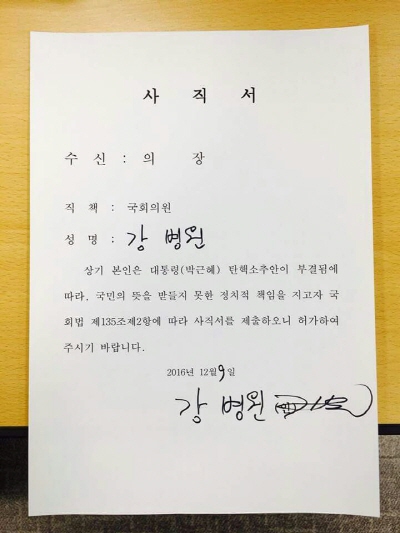 사 직 서
수 신 : 의 장
직 책 : 국회의원
성 명 : 강 병원
상기 본인은 대통령(박근혜) 탄핵소추안이 부결됨에
따라, 국민의 뜻을 받들지 못한 정치적 책임을 지고자 국
회법 제135조제2항에 따라 사직서를 제출하오니 허가하여
주시기 바랍니다.
2016년 12월 9일
강 병원